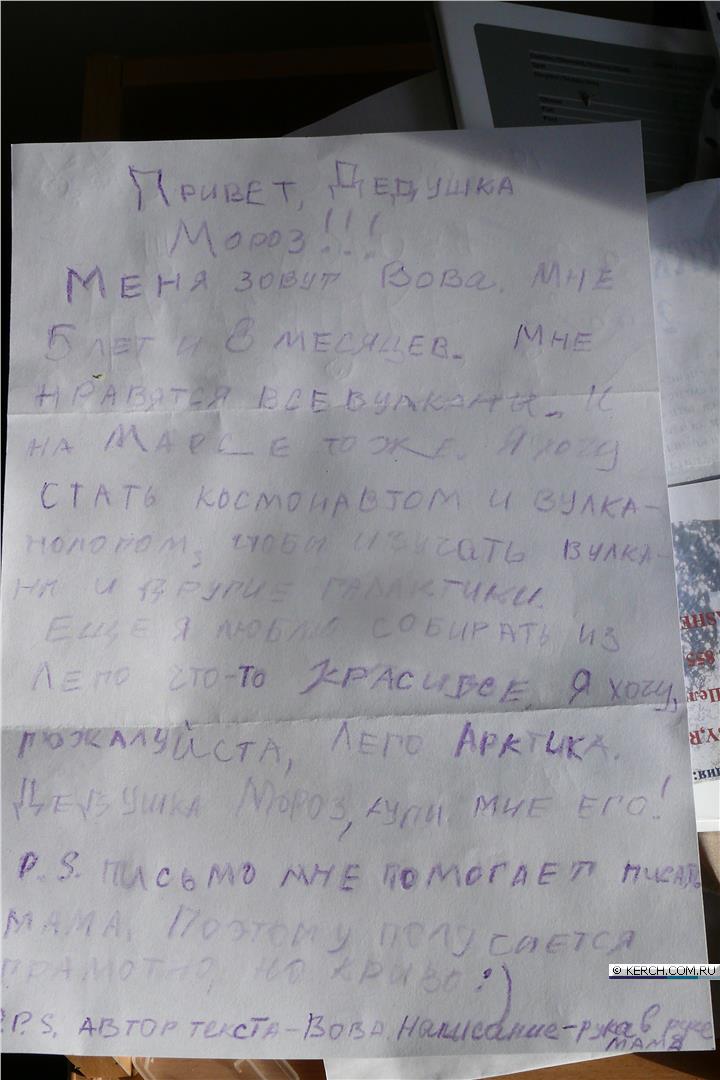 Привет, Дедушка
Мороз!!!
Меня зовут Вова. Мне
5 лет и 8 месяцев. Мне
нравятся все вулканы. И
на Марсе тоже. Я хочу
стать космонавтом и вулка-
нологом, чтобы изучать вулка-
ны и другие галактики.
Еще я люблю собирать из
Лего что-то красивое. Я хочу,
пожалуйста, Лего Арктика.
Дедушка Мороз, купи мне его!
P.S. Письмо мне помогает писать
мама. Поэтому получается
грамотно, но криво:)
P.P.S. Автор текста - Вова. Написание - рука в руке
мама
© KERCH.COM.RU
855